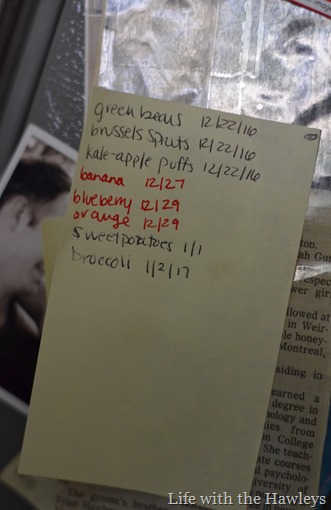 green beans 12/22/16
brussels sprouts 12/22/16
kale-apple puffs 12/22/16
banana 12/27
blueberry 12/29
orange 12/29
sweet potatoes 1/1
broccoli 1/2/17
ton.
ah Gun
respec
wer girl
llowed at
in Weir-
le honey-
Montreal,
siding in
earned a
degree in
hology and
lies from
n College
She teach-
ate courses
l psycholo-
iversity of
The groom's brother
Tyler Hawley
Life with the Hawleys